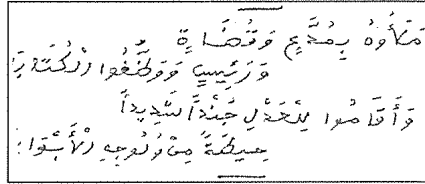 مَلَأُوهُ بِمُدَّعٍ وَقُضَاةٍ
وَرَئِيسٍ وَوَظَّفُوا الْكُتَّابَا
وَأَقَامُوا لِلْعَدْلِ جُنْداً شَدِيداً
حِيطَةً مِنْ وُلُوجِهِ الْأَبْوَا